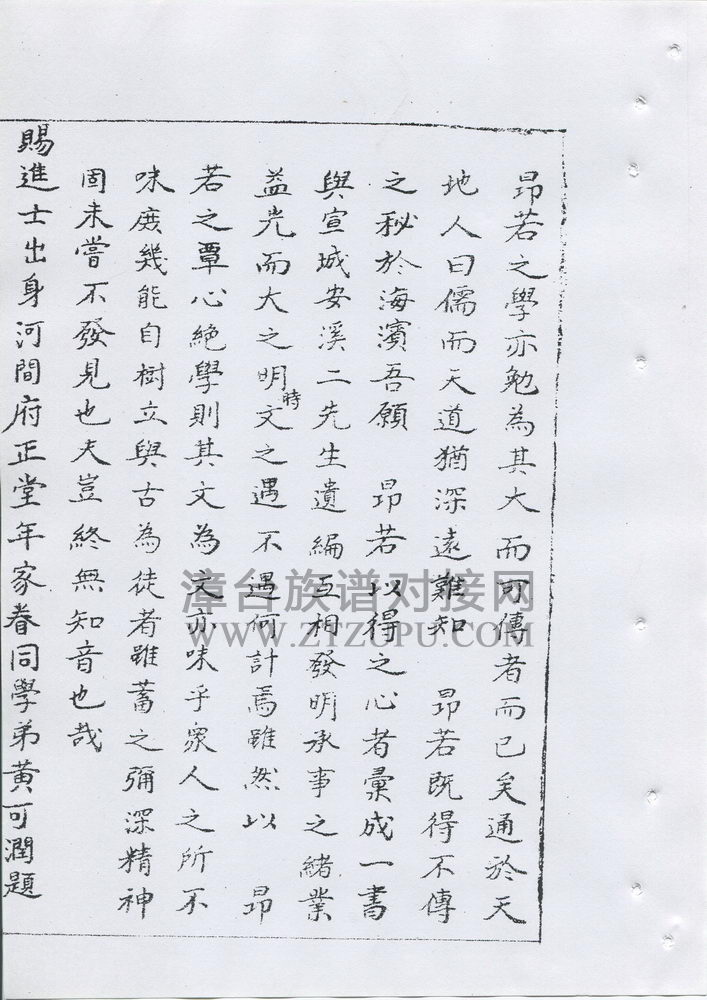 昂若之學亦勉為其大而可傳者而已矣通於天
地人曰儒而天道猶深遠難知　昂若既得不傳
之秘於海濱吾願　昂若以得之心者彙成一書
與宣城安溪二先生遺編互相發明承事之緒業
益光而大之明時文之遇不遇何計焉雖然以　昂
若之覃心絕學則其文為文亦味乎眾人之所不
味庶幾能自樹立與古為徒者雖蓄之彌深精神
固未嘗不發見也夫豈終無知音也哉
賜進士出身河間府正堂年家眷同學弟黃可潤題
漳台族谱对接网
WWW.ZTZUPU.COM